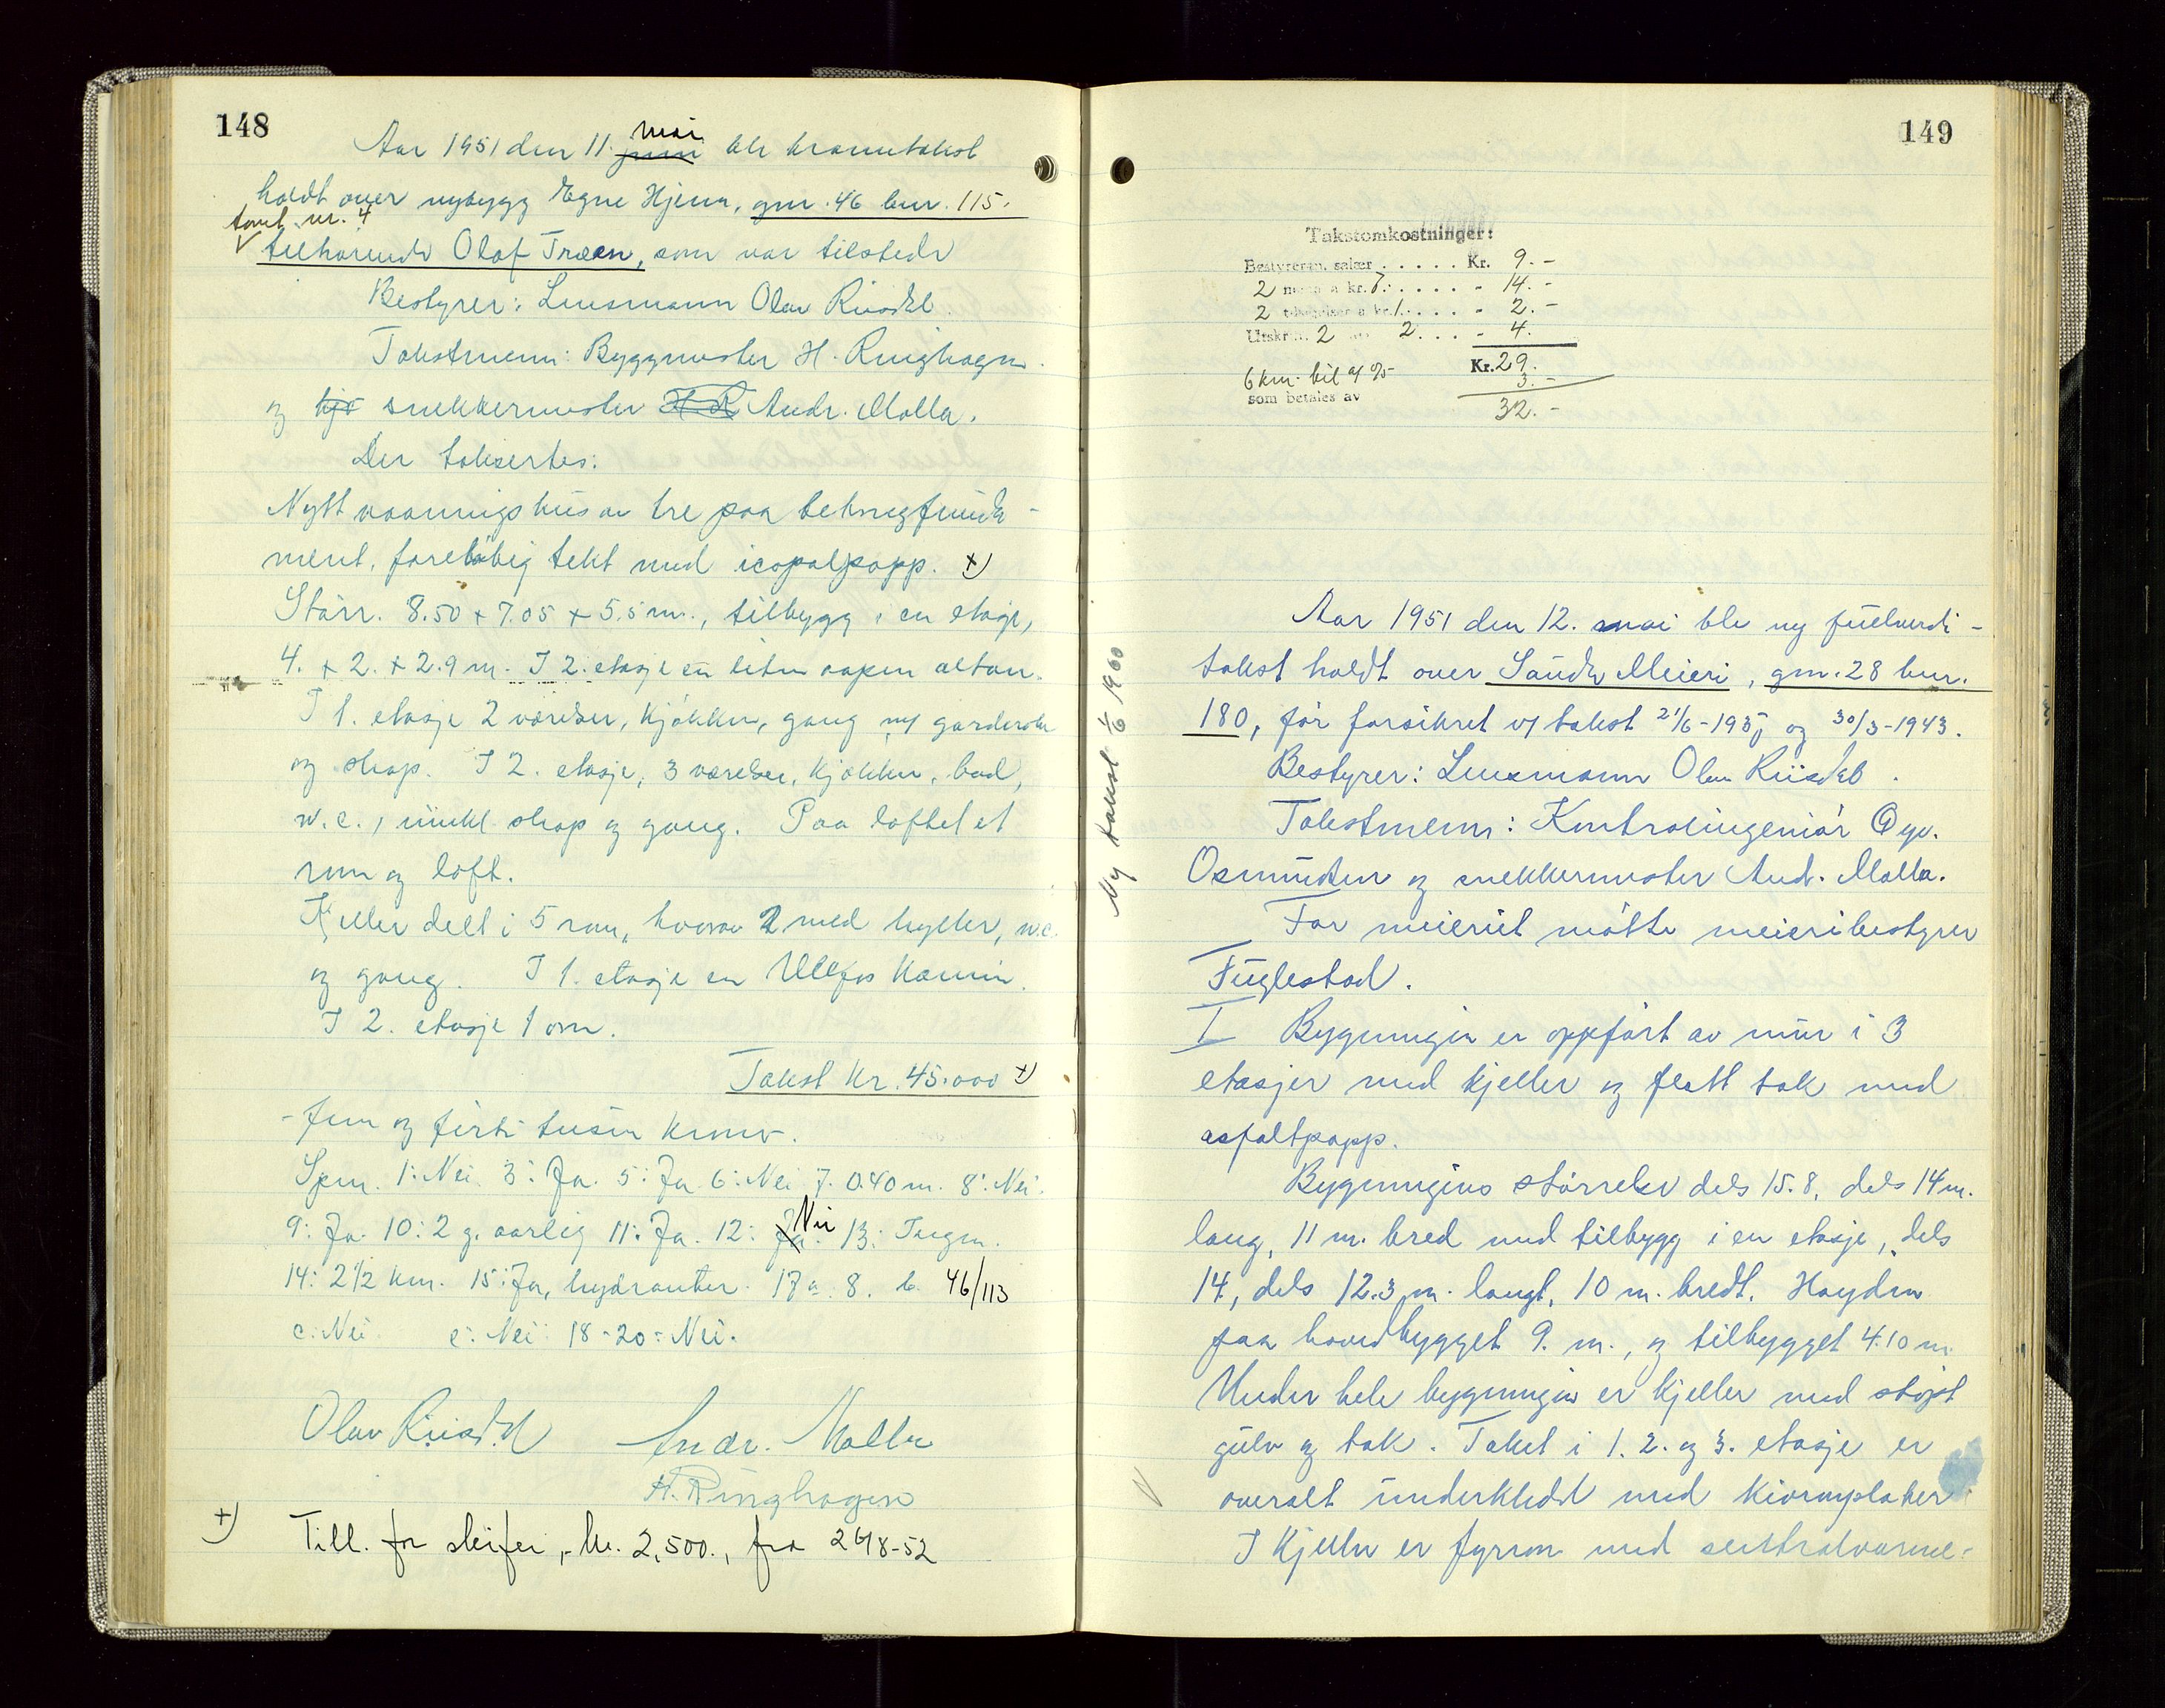 148
Aar 1951 den 11. juni mai ble branntakst
holdt over nybygg Egne Hjem, gnr. 46 bnr. 115.
tomt nr. 4
tilhørende Olaf Træen, som var tilstede
Bestyrer: Lensmann Olav Riisdal
Takstmenn: Byggmester H. Ringhagen
og snekkermester Andr. Molla.
Der taksertes:
Nytt vaaningshus av tre paa betongfunda-
ment, foreløbig tekt med icopalpapp. +)
Størr. 8.50 + 7.05 + 5.5 m., tilbygg i en etasje,
4. + 2. + 2.9 m. I 2. etasje en liten aapen altan.
I 1. etasje 2 værelser, kjøkken, gang m/ garderobe
og skap. I 2. etasje, 3 værelser, kjøkken, bad,
w.c., skap og gang. Paa loftet et
rum og loft.
Kjeller delt i 5 rum, hvorav 2 med hyller, w.c.
og gang. I 1. etasje en Ulefos kamin.
I 2. etasje 1 ovn.
Takst kr. 45.000 +)
- fem og førti tusen kroner -
Spm. 1: Nei 3: Ja. 5: Ja 6: Nei 7. 0.40 m. 8: Nei.
9: Ja. 10: 2 g. aarlig 11: Ja. 12: Ja. Nei 13: Ingen.
14: 2 1/2 km. 15: Ja, hydranter. 17 a. 8. b. 46/113
c: Nei. e: Nei 18-20: Nei.
Olav Riisdal Andr. Molla
H. Ringhagen
+) Till. for sleifer, kr. 2,500., fra 26/8-52
149
Takstomkostninger:
Bestyreren, salær . . . . . Kr. 9.-
2 menn a kr. 7. . . . . - 14.-
2 a kr. 1. . . . . - 2.-
Utskr. 2 2. . . - 4.
Kr. 29.
6 km. bil a/ %- 3.-
som betales av
32.-
Ny takst 1/6 1960
Aar 1951 den 12. mai ble ny fullverdi-
takst holdt over Sande Meieri, gnr. 28 bnr.
180, før forsikret v/ takst 21/6-1935 og 30/3-1943.
Bestyrer: Lensmann Olav Riisdal.
Takstmenn: Kontrolingeniør Gge.
Osmundsen og snekkermester And. Molla.
For meieriet møtte meieribestyrer
Fuglestad.
I Bygningen er oppført av mur i 3
etasjer med kjeller og flatt tak med
asfaltpapp.
Bygningens størrelse dels 15.8, dels 14 m.
lang, 11 m. bred med tilbygg i en etasje, dels
14, dels 12.3 m. langt, 10 m. bredt. Høyden
paa hovedbygget 9. m., og tilbygget 4.10 m.
Under hele bygningen er kjeller med støpt
gulv og tak. Taket i 1. 2. og 3. etasje er
overalt underkledd med
I Kjeller er fyrrom med sentralvarme-